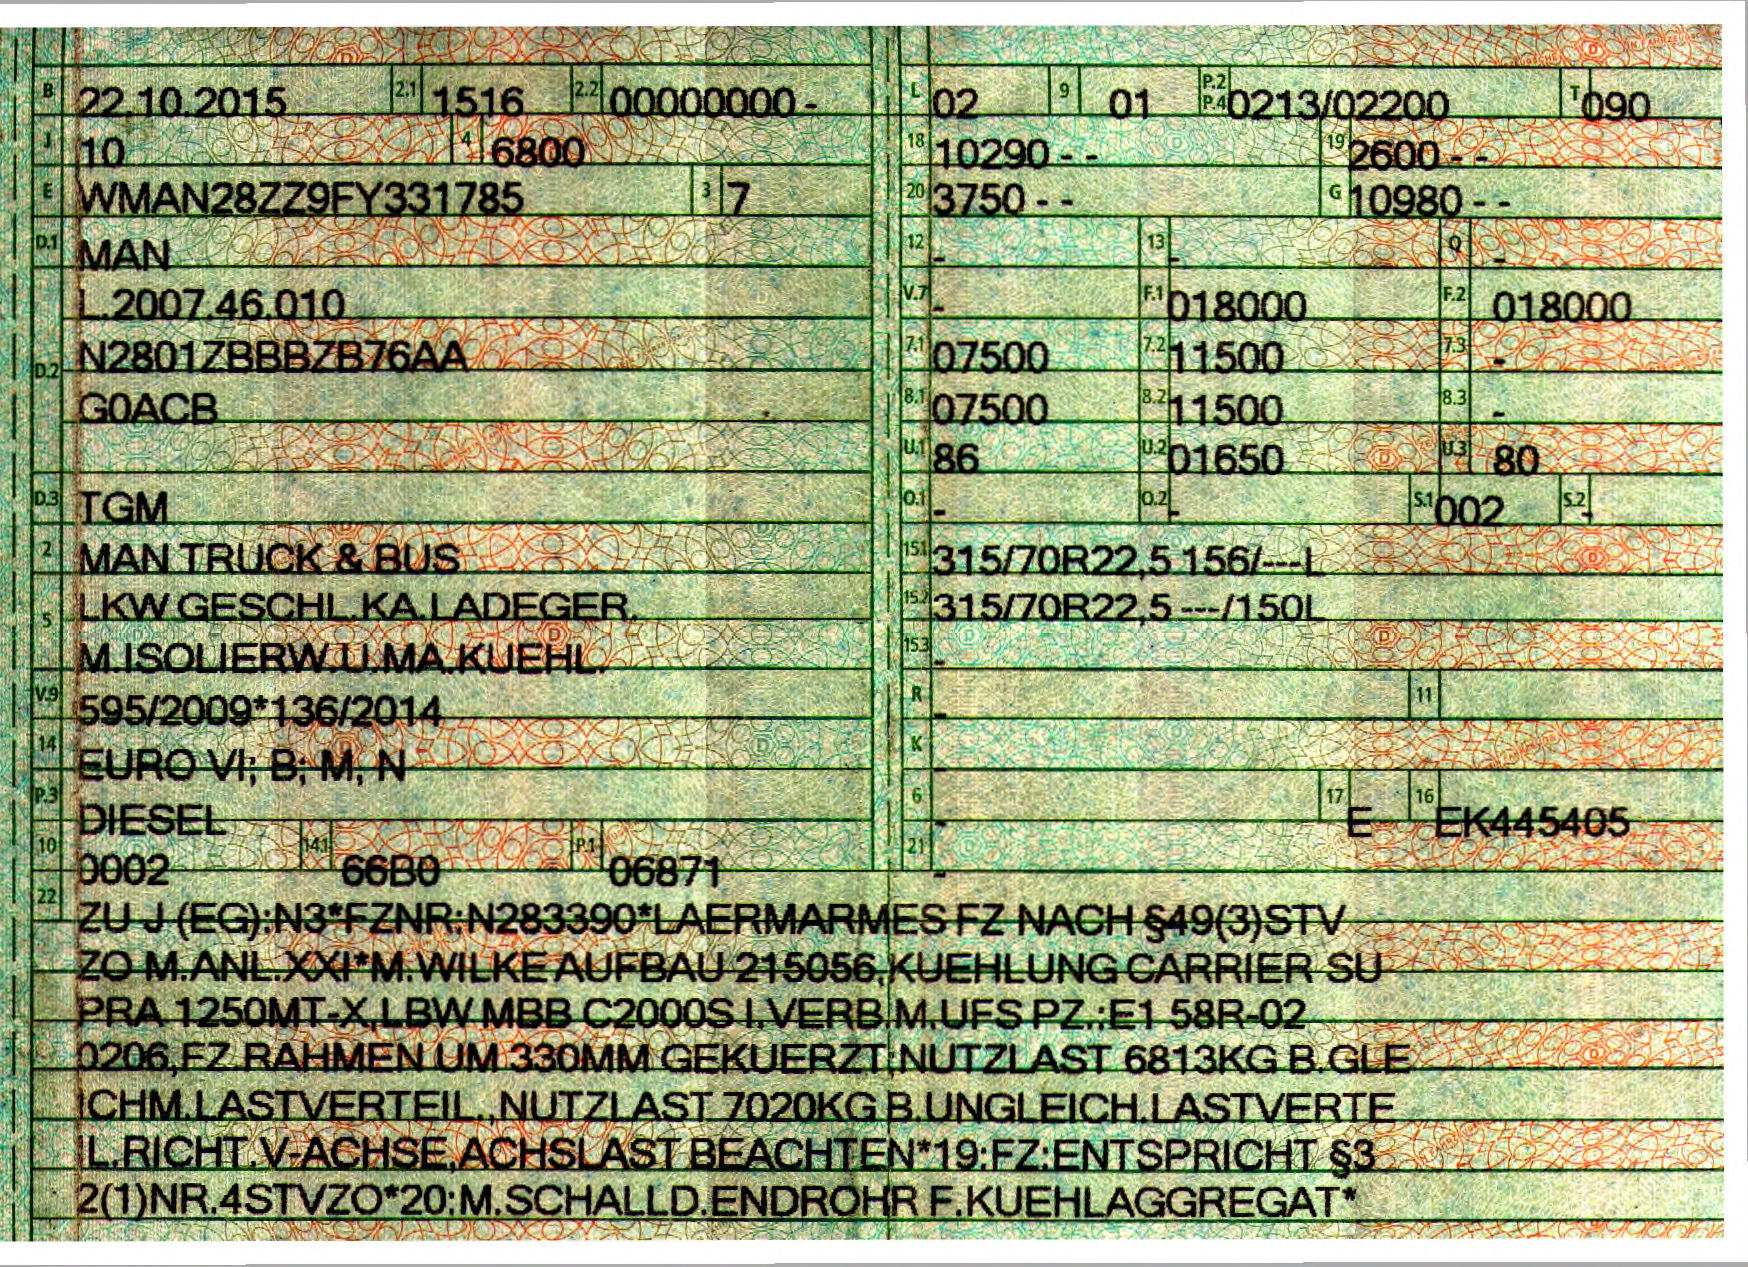 B 22.10.2015 2.1 1516 2.2 00000000 -
J 10 4 6800
E WMAN28ZZ9FY331785 3 7
D.1 MAN
L.2007.46.010
D.2 N2801ZBBBZB76AA
G0ACB
D.3 TGM
2 MAN TRUCK & BUS
5 LKW GESCHL.KA.LADEGER.
M.ISOLIERW.U.MA.KUEHL.
V.9 595/2009*136/2014
14 EURO VI; B; M, N
P.3 DIESEL
10 0002 14.1 66B0 P.1 06871
L 02 9 01 P.2 P.4 0213/02200 T 090
18 10290 - - 19 2600 - -
20 3750 - - G 10980 - -
12 - 13 - Q -
V.7 - F.1 018000 F.2 018000
7.1 07500 7.2 11500 7.3 -
8.1 07500 8.2 11500 8.3 -
U.1 86 U.2 01650 U.3 80
O.1 - O.2 - S.1 002 S.2 -
15.1 315/70R22,5 156/---L
15.2 315/70R22,5 ---/150L
15.3 -
R - 11
K -
6 - 17 E 16 EK445405
21 -
22 ZU J (EG):N3*FZNR:N283390*LAERMARMES FZ NACH §49(3)STV
ZO M.ANL.XXI*M.WILKE AUFBAU 215056,KUEHLUNG CARRIER SU
PRA 1250MT-X,LBW MBB C2000S I.VERB.M.UFS PZ.:E1 58R-02
0206,FZ.RAHMEN UM 330MM GEKUERZT;NUTZLAST 6813KG B.GLE
ICHM.LASTVERTEIL.,NUTZLAST 7020KG B.UNGLEICH.LASTVERTE
IL.RICHT.V-ACHSE,ACHSLAST BEACHTEN*19:FZ:ENTSPRICHT §3
2(1)NR.4STVZO*20:M.SCHALLD.ENDROHR F.KUEHLAGGREGAT*